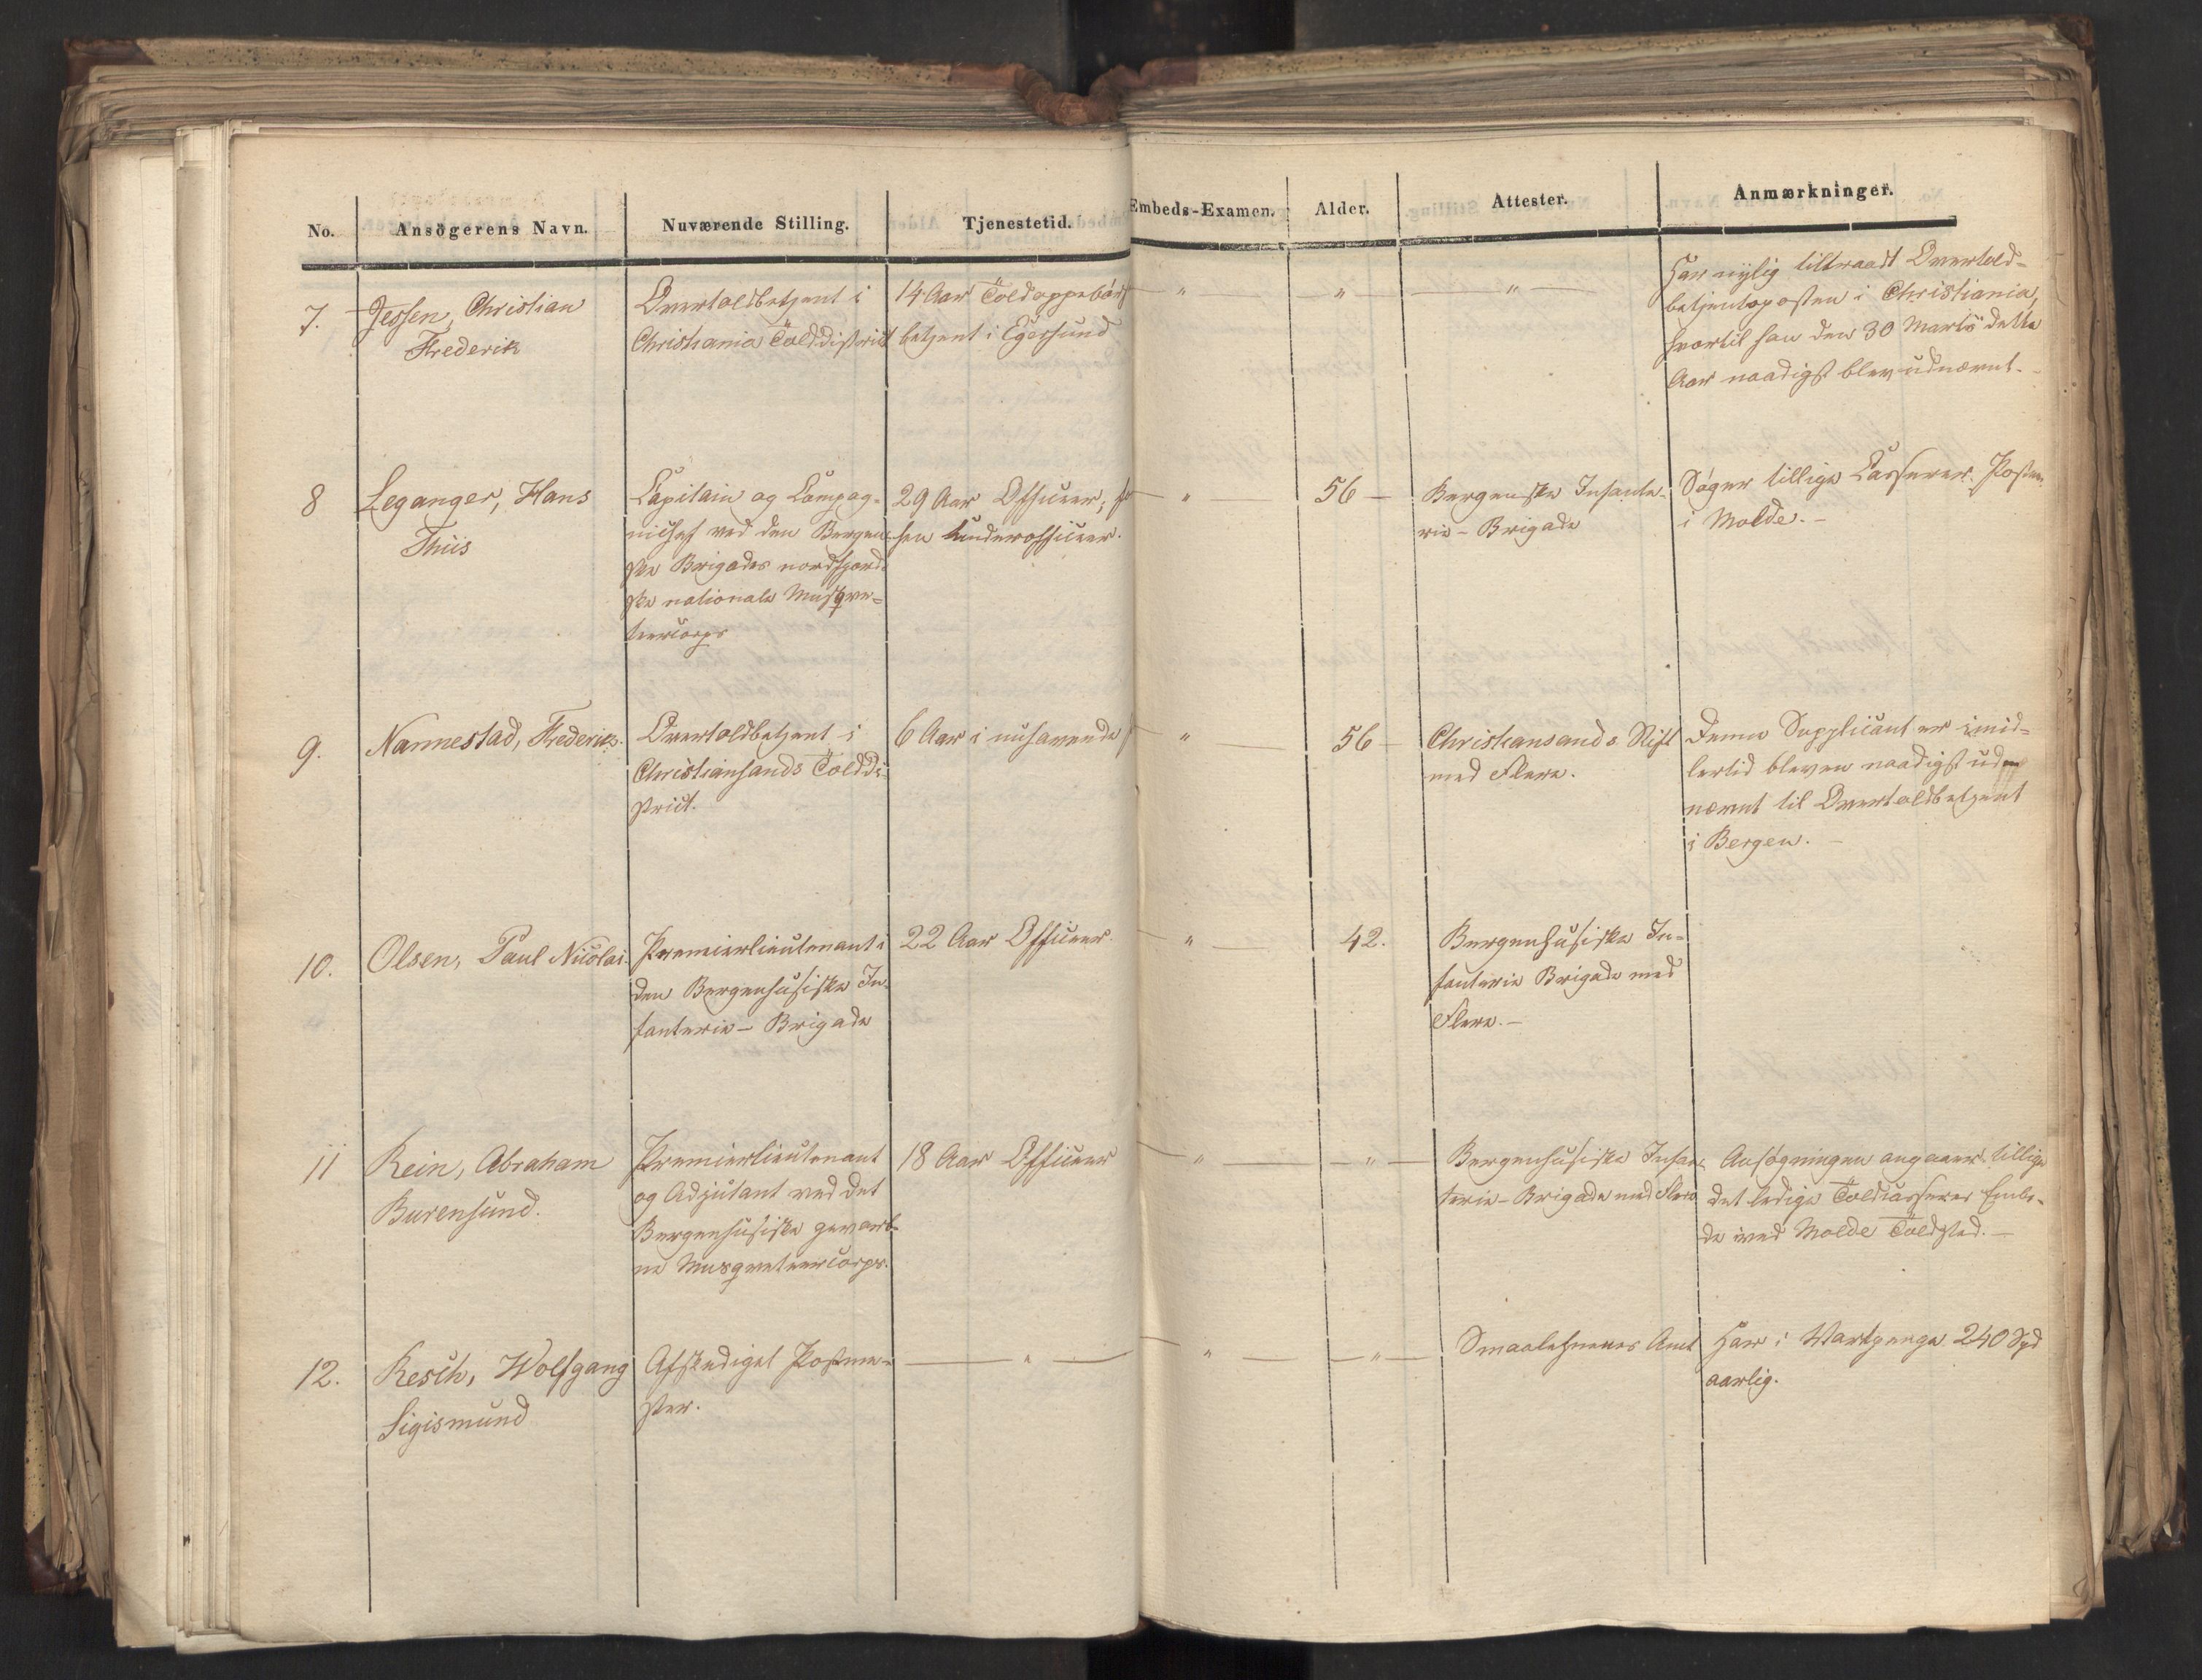 No. Ansögerens Navn. Nuværende Stilling. Tjenestetid. Embeds-Examen. Alder. Attester. Anmærkninger.
7. Jessen, Christian
Frederik
Overtoldbetjent i
Christiania Tolddistrict
14 Aar Toldoppebörs
betjent i Egersund
"
"
"
Har nylig tiltraadt Overtold-
betjentposten i Christiania,
hvortil han den 30 Marts dette
Aar naadigst blev udnævnt.
8 Leganger, Hans
Thiis
Capitain og Compag-
nichef ved den Bergen-
ske Brigades nordfjord-
ske nationale Musqve-
teercorps
29 Aar Officeer,
som Underofficeer.
"
56
Bergenske Infante-
rie-Brigade
Søger tillige Casserer Posten
i Molde.
9. Nannestad, Frederik.
Overtoldbetjent i
Christiansands Tolddi-
strict.
6 Aar i nuhavende
"
56
Christiansands Stift
med Flere.
Denne Supplicant er imid-
lertid bleven naadigst ud-
nævnt til Overtoldbetjent
i Bergen.
10. Olsen, Paul Nicolai
Premierlieutenant i
den Bergenhusiske In-
fanterie-Brigade
22 Aar Officeer.
"
42.
Bergenhusiske In-
fanterie Brigade med
Flere.
11 Rein, Abraham
Burensund.
Premierlieutenant
og Adjutant ved det
Bergenhusiske gevorb-
ne Musqveteercorps.
18 Aar Officeer
"
"
Bergenhusiske Infan-
terie-Brigade med Flere
Ansøgningen angaaer tillige
det ledige Toldcasserer Embe-
de ved Molde Toldsted.
12. Resch, Wolfgang
Sigismund
Afskediget Postme-
ster.
"
"
"
Smaalehnenes Amt
Har i Vartpenge 240 Spd
aarlig.